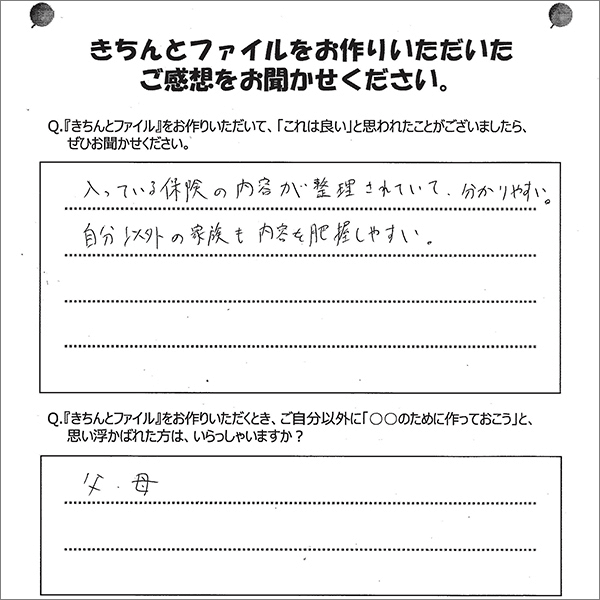 きちんとファイルをお作りいただいた
ご感想をお聞かせください。
Q.『きちんとファイル』をお作りいただいて、「これは良い」と思われたことがございましたら、
ぜひお聞かせください。
入っている保険の内容が整理されていて、分かりやすい。
自分以外の家族も内容を肥握しやすい。
Q.『きちんとファイル』をお作りいただくとき、ご自分以外に「○○のために作っておこう」と、
思い浮かばれた方は、いらっしゃいますか？
父・母